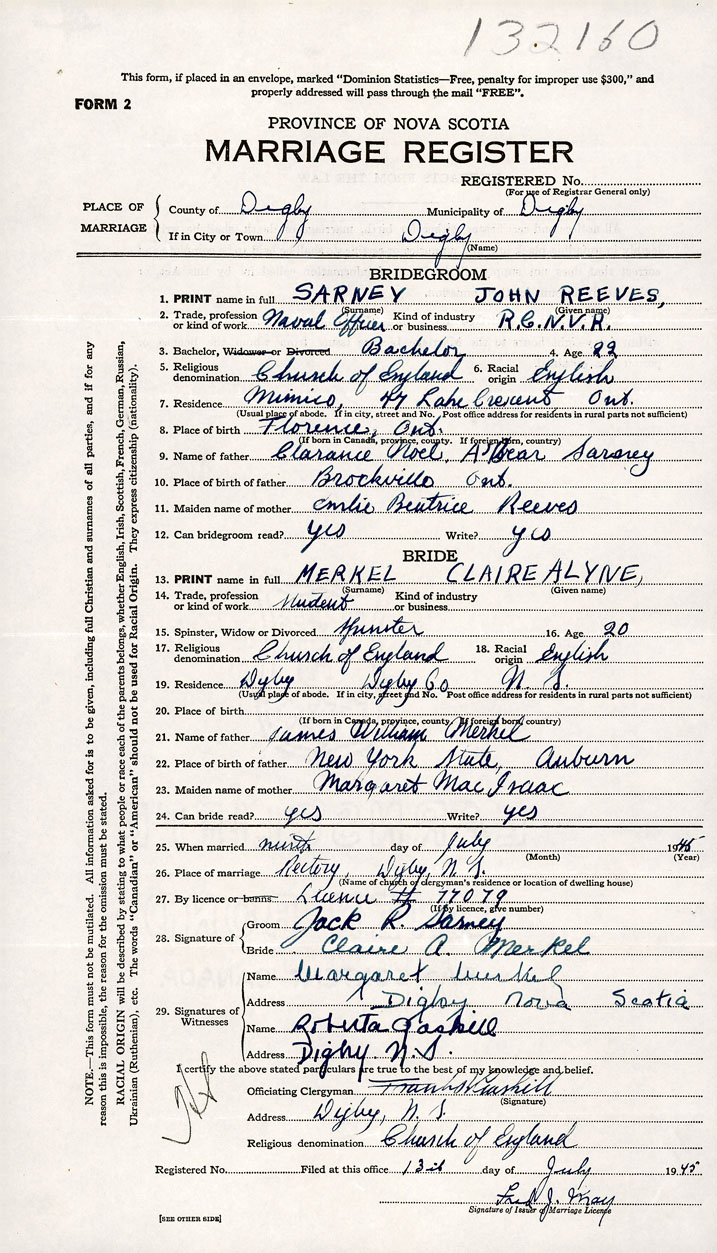 132160
This form, if placed in an envelope, marked "Dominion Statistics—Free, penalty for improper use $300," and
properly addressed will pass through the mail "FREE".
FORM 2
PROVINCE OF NOVA SCOTIA
MARRIAGE REGISTER
REGISTERED No.
(For use of Registrar General only)
PLACE OF MARRIAGE
County of Digby Municipality of Digby
If in City or Town Digby
(Name)
BRIDEGROOM
1. PRINT name in full SARNEY JOHN REEVES,
(Surname) (Given name)
2. Trade, profession or kind of work Naval Officer Kind of industry or business R.C.N.V.R.
3. Bachelor, Widower or Divorced Bachelor 4. Age 22
5. Religious denomination Church of England 6. Racial origin English
7. Residence Mimico, 47 Lake Crescent Ont.
(Usual place of abode. If in city, street and No. Post office address for residents in rural parts not sufficient)
8. Place of birth Florence, Ont.
(If born in Canada, province, county. If foreign born, country)
9. Name of father Clarance Noel Sarney
10. Place of birth of father Brockville Ont.
11. Maiden name of mother Emlie Beatrice Reeves
12. Can bridegroom read? yes Write? yes
BRIDE
13. PRINT name in full MERKEL CLAIRE ALYNE,
(Surname) (Given name)
14. Trade, profession or kind of work Student Kind of industry or business
15. Spinster, Widow or Divorced Spinster 16. Age 20
17. Religious denomination Church of England 18. Racial origin English
19. Residence Digby Digby Co N. S.
(Usual place of abode. If in city, street and No. Post office address for residents in rural parts not sufficient)
20. Place of birth
(If born in Canada, province, county. If foreign born, country)
21. Name of father James William Merkel
22. Place of birth of father New York State, Auburn
23. Maiden name of mother Margaret Mac Isaac
24. Can bride read? yes Write? yes
25. When married ninth day of July 1945
(Month) (Year)
26. Place of marriage Rectory, Digby, N. S.
(Name of church or clergyman's residence or location of dwelling house)
27. By licence or banns Licence # 77079
(If by licence, give number)
28. Signature of
Groom Jack R. Sarney
Bride Claire A. Merkel
29. Signatures of Witnesses
Name Margaret Merkel
Address Digby Nova Scotia
Name Roberta Gaskill
Address Digby. N.S.
I certify the above stated particulars are true to the best of my knowledge and belief.
Officiating Clergyman Gaskill
(Signature)
Address Digby, N. S.
Religious denomination Church of England
Registered No. Filed at this office 13th day of July 1945
Fred J. May
Signature of Issuer of Marriage Licence
[SEE OTHER SIDE]
NOTE.—This form must not be mutilated. All information asked for is to be given, including full Christian and surnames of all parties, and if for any
reason this is impossible, the reason for the omission must be stated.
RACIAL ORIGIN will be described by stating to what people or race each of the parents belongs, whether English, Irish, Scottish, French, German, Russian,
Ukrainian (Ruthenian), etc. The words "Canadian" or "American" should not be used for Racial Origin. They express citizenship (nationality).